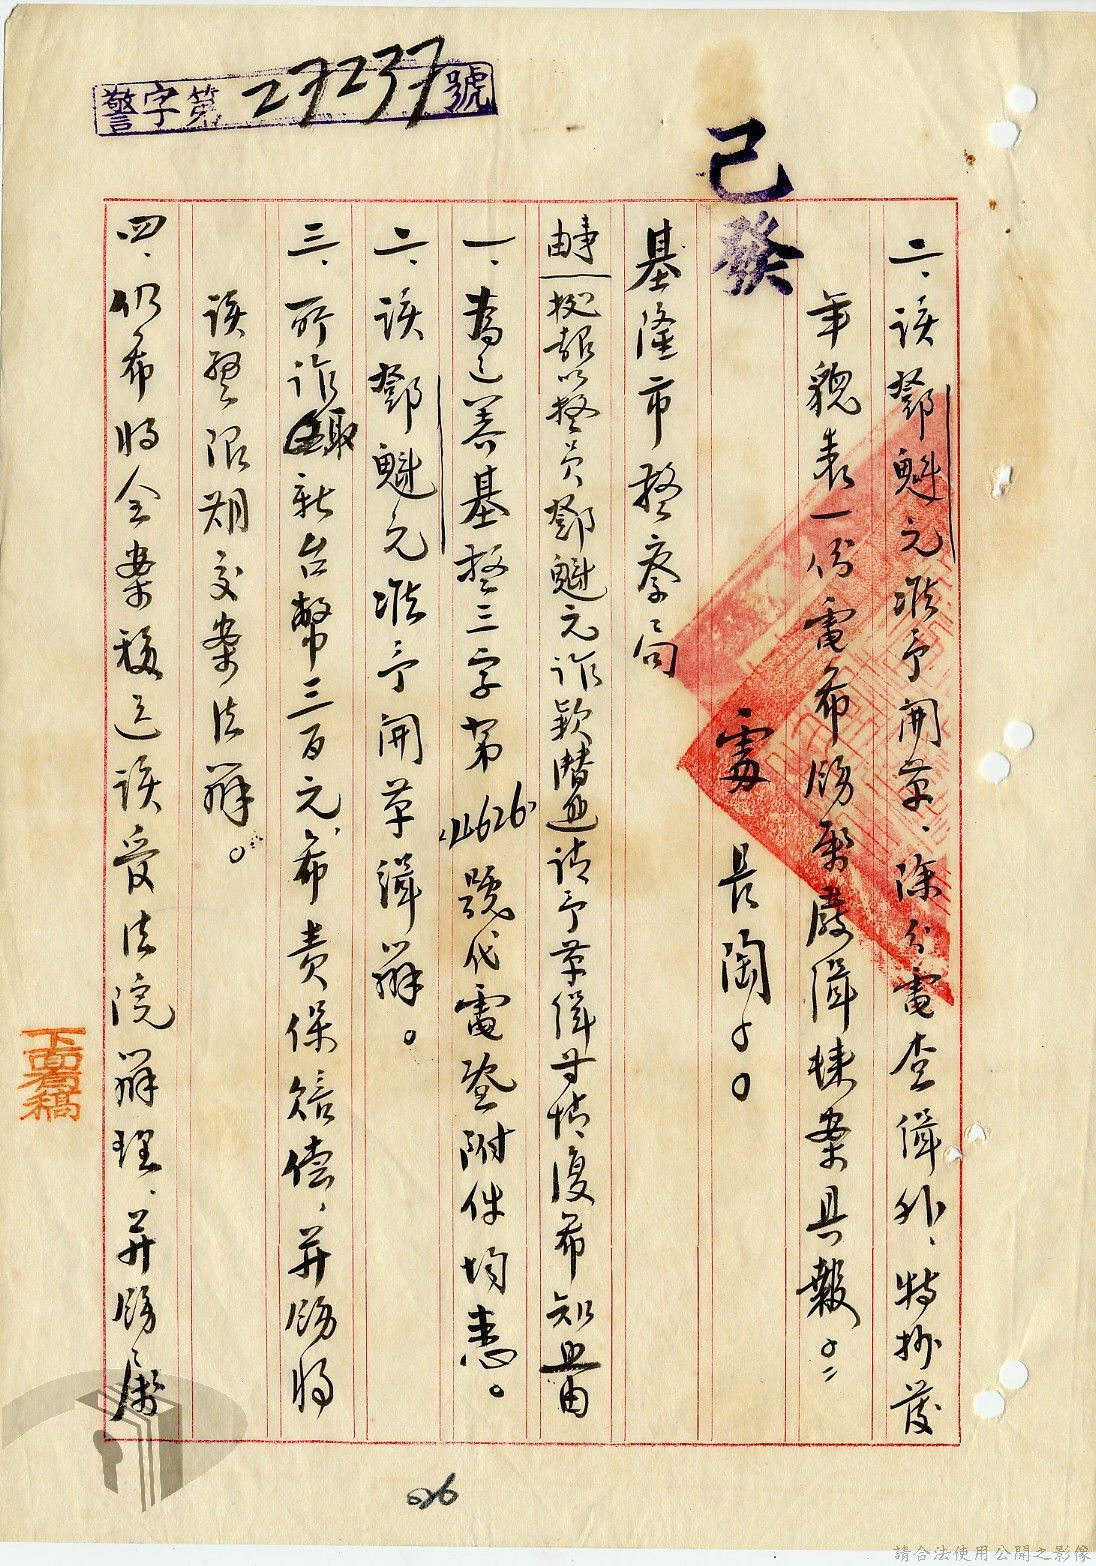 警字第27237號
已發
二、該鄧魁元准予開革、除分電查緝外、特抄發
年貌表一份電希飭屬嚴緝歸案具報。
處長陶
基隆市警察局
事由一據報以警員鄧魁元詐欺潛逃請予革緝等情復希知照由
一、基警三字第11626號代電暨附件均悉。
二、該鄧魁元准予開革緝辦。
三、所詐取新台幣三百元希責保賠償，并飭將
該警限期交案法辦。
四、仍希將全案移送該管法院辦理、并飭屬
下面有稿
26
請合法使用公開之影像